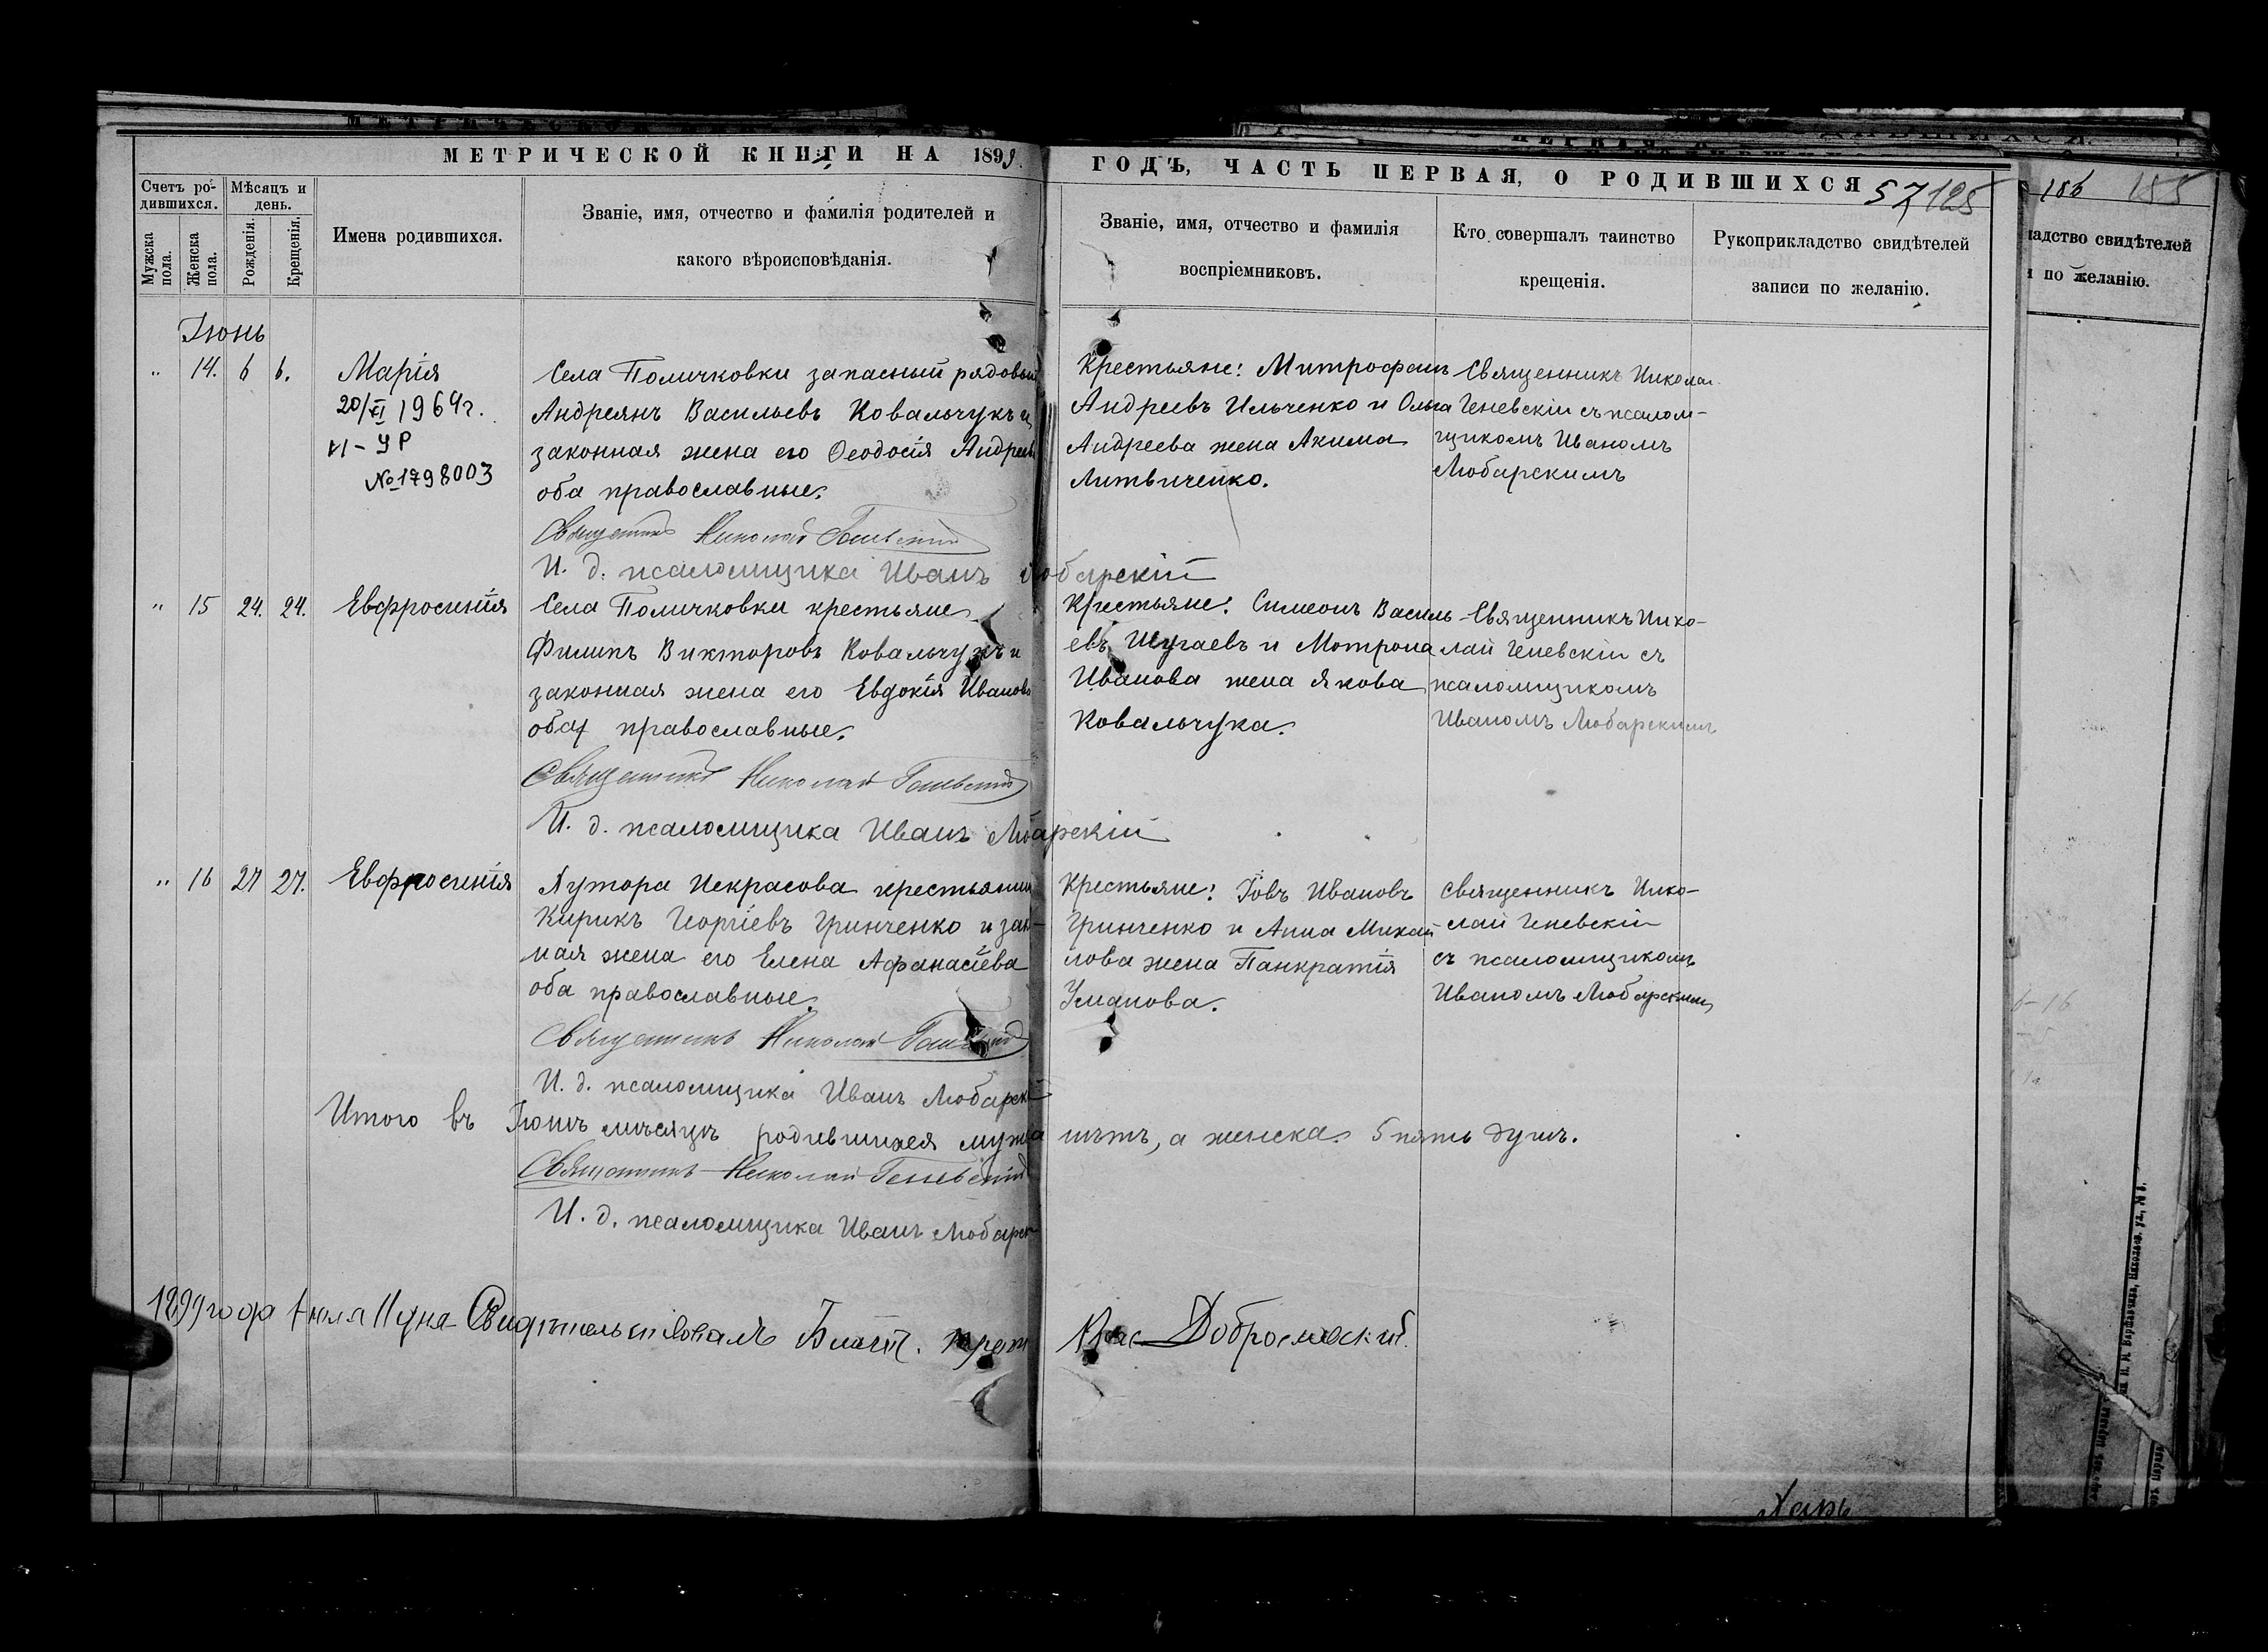 МЕТРИЧЕСКОЙ КНИГИ НА 1899
ГОДЪ, ЧАСТЬ ПЕРВАЯ, О РОДИВШИХСЯ
57 125
186 185
Счетъ ро-
дившихся.
Мѣсяцъ и
день.
Мужска
пола.
Женска
пола.
Рожденія.
Крещенія.
Имена родившихся.
Званіе, имя, отчество и фамилія родителей и
какого вѣроисповѣданія.
Званіе, имя, отчество и фамилія
воспріемниковъ.
Кто совершалъ таинство
крещенія.
Рукоприкладство свидѣтелей
записи по желанію.
ладство свидѣтелей
и по желанію.
Іюнь
" 14. 6 6.
Марія
20/XI 1964г.
VI-УР
№1798003
Села Поличковки запасный рядовый
Андреянъ Васильевъ Ковальчукъ и
законная жена его Ѳеодосія Андреева
оба православные.
Священникъ Николай Геневскій
И. д. псаломщика Иванъ Любарскій
Крестьяне: Митрофанъ
Андреевъ Ильченко и Ольга
Андреева жена Акима
Литвиченко.
Священникъ Николай
Геневскій съ псалом-
щикомъ Иваномъ
Любарскимъ
" 15 24. 24.
Евфросинія
Села Поличковки крестьяне
Филипъ Викторовъ Ковальчукъ и
законная жена его Евдокія Иванова
оба православные.
Священникъ Николай Геневскій
И. д. псаломщика Иванъ Любарскій
Крестьяне: Симеонъ Василь-
евъ Шугаевъ и Мотрона
Иванова жена Якова
Ковальчука.
Священникъ Нико-
лай Геневскій съ
псаломщикомъ
Иваномъ Любарскимъ
" 16 27 27.
Евфросинія
Хутора Некрасова крестьянинъ
Кирикъ Георгіевъ Гринченко и закон-
ная жена его Елена Афанасіева
оба православные.
Священникъ Николай Геневскій
И. д. псаломщика Иванъ Любарскій
Крестьяне: Іовъ Ивановъ
Гринченко и Анна Михай
лова жена Панкратія
Усманова.
Священникъ Нико-
лай Геневскій
съ псаломщикомъ
Иваномъ Любарскимъ
Итого въ Іюнѣ мѣсяцѣ родившихся мужска нѣтъ, а женска 5 пять душъ.
Священникъ Николай Геневскій
И. д. псаломщика Иванъ Любарск
1899 года Іюля 11 дня Свидѣтельствовалъ Благ. Добросмаский.
Харь